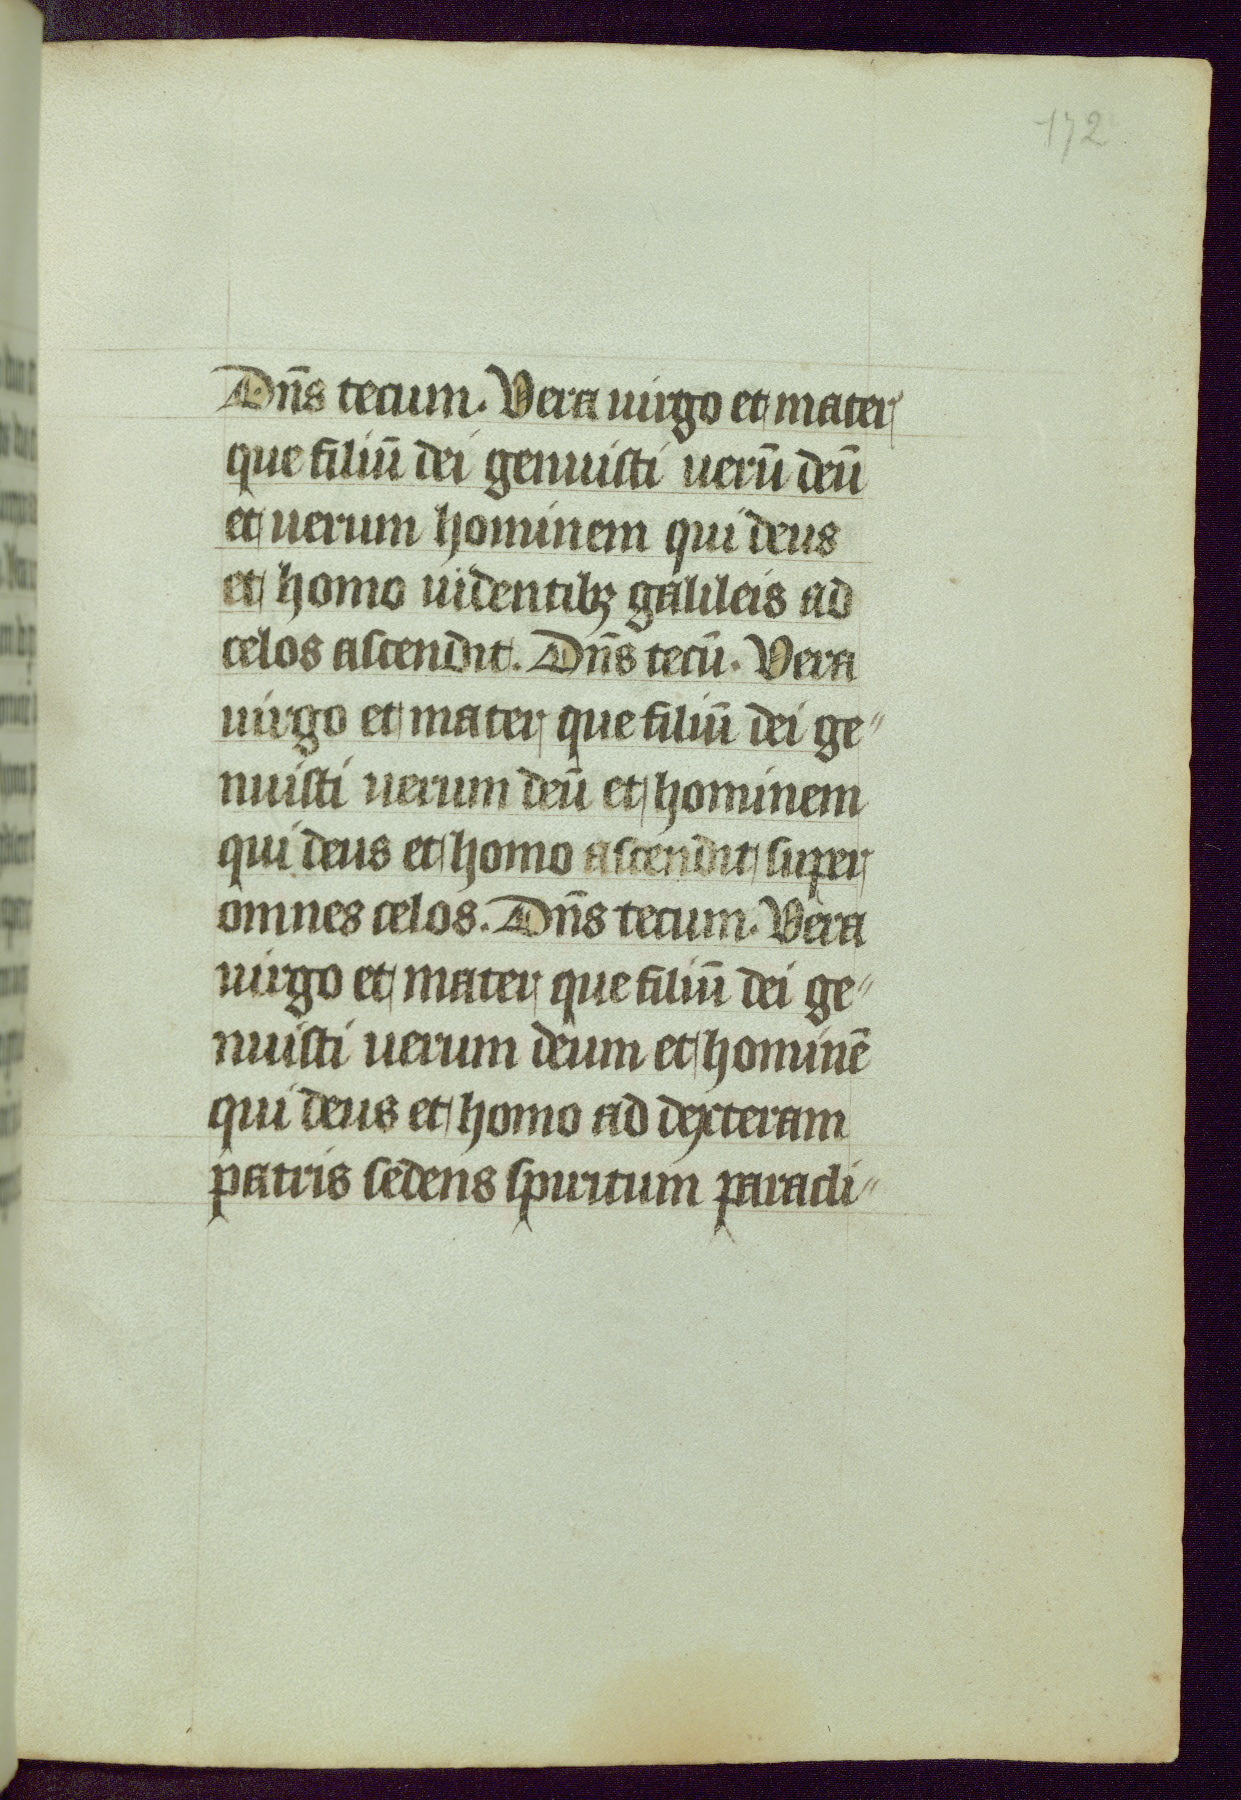 172
Dn̄s tecum. Vera uirgo et mater
que filiū dei genuisti uerū deū
et uerum hominem qui deus
et homo uidentibꝫ galileis ad
celos ascendit. Dn̄s tecū. Vera
uirgo et mater que filiū dei ge〃
nuisti uerum deū et hominem
qui deus et homo ascendit super
omnes celos. Dn̄s tecum. Vera
uirgo et mater que filiū dei ge〃
nuisti uerum deum et hominē
qui deus et homo ad dexteram
patris sedens spiritum paracli〃